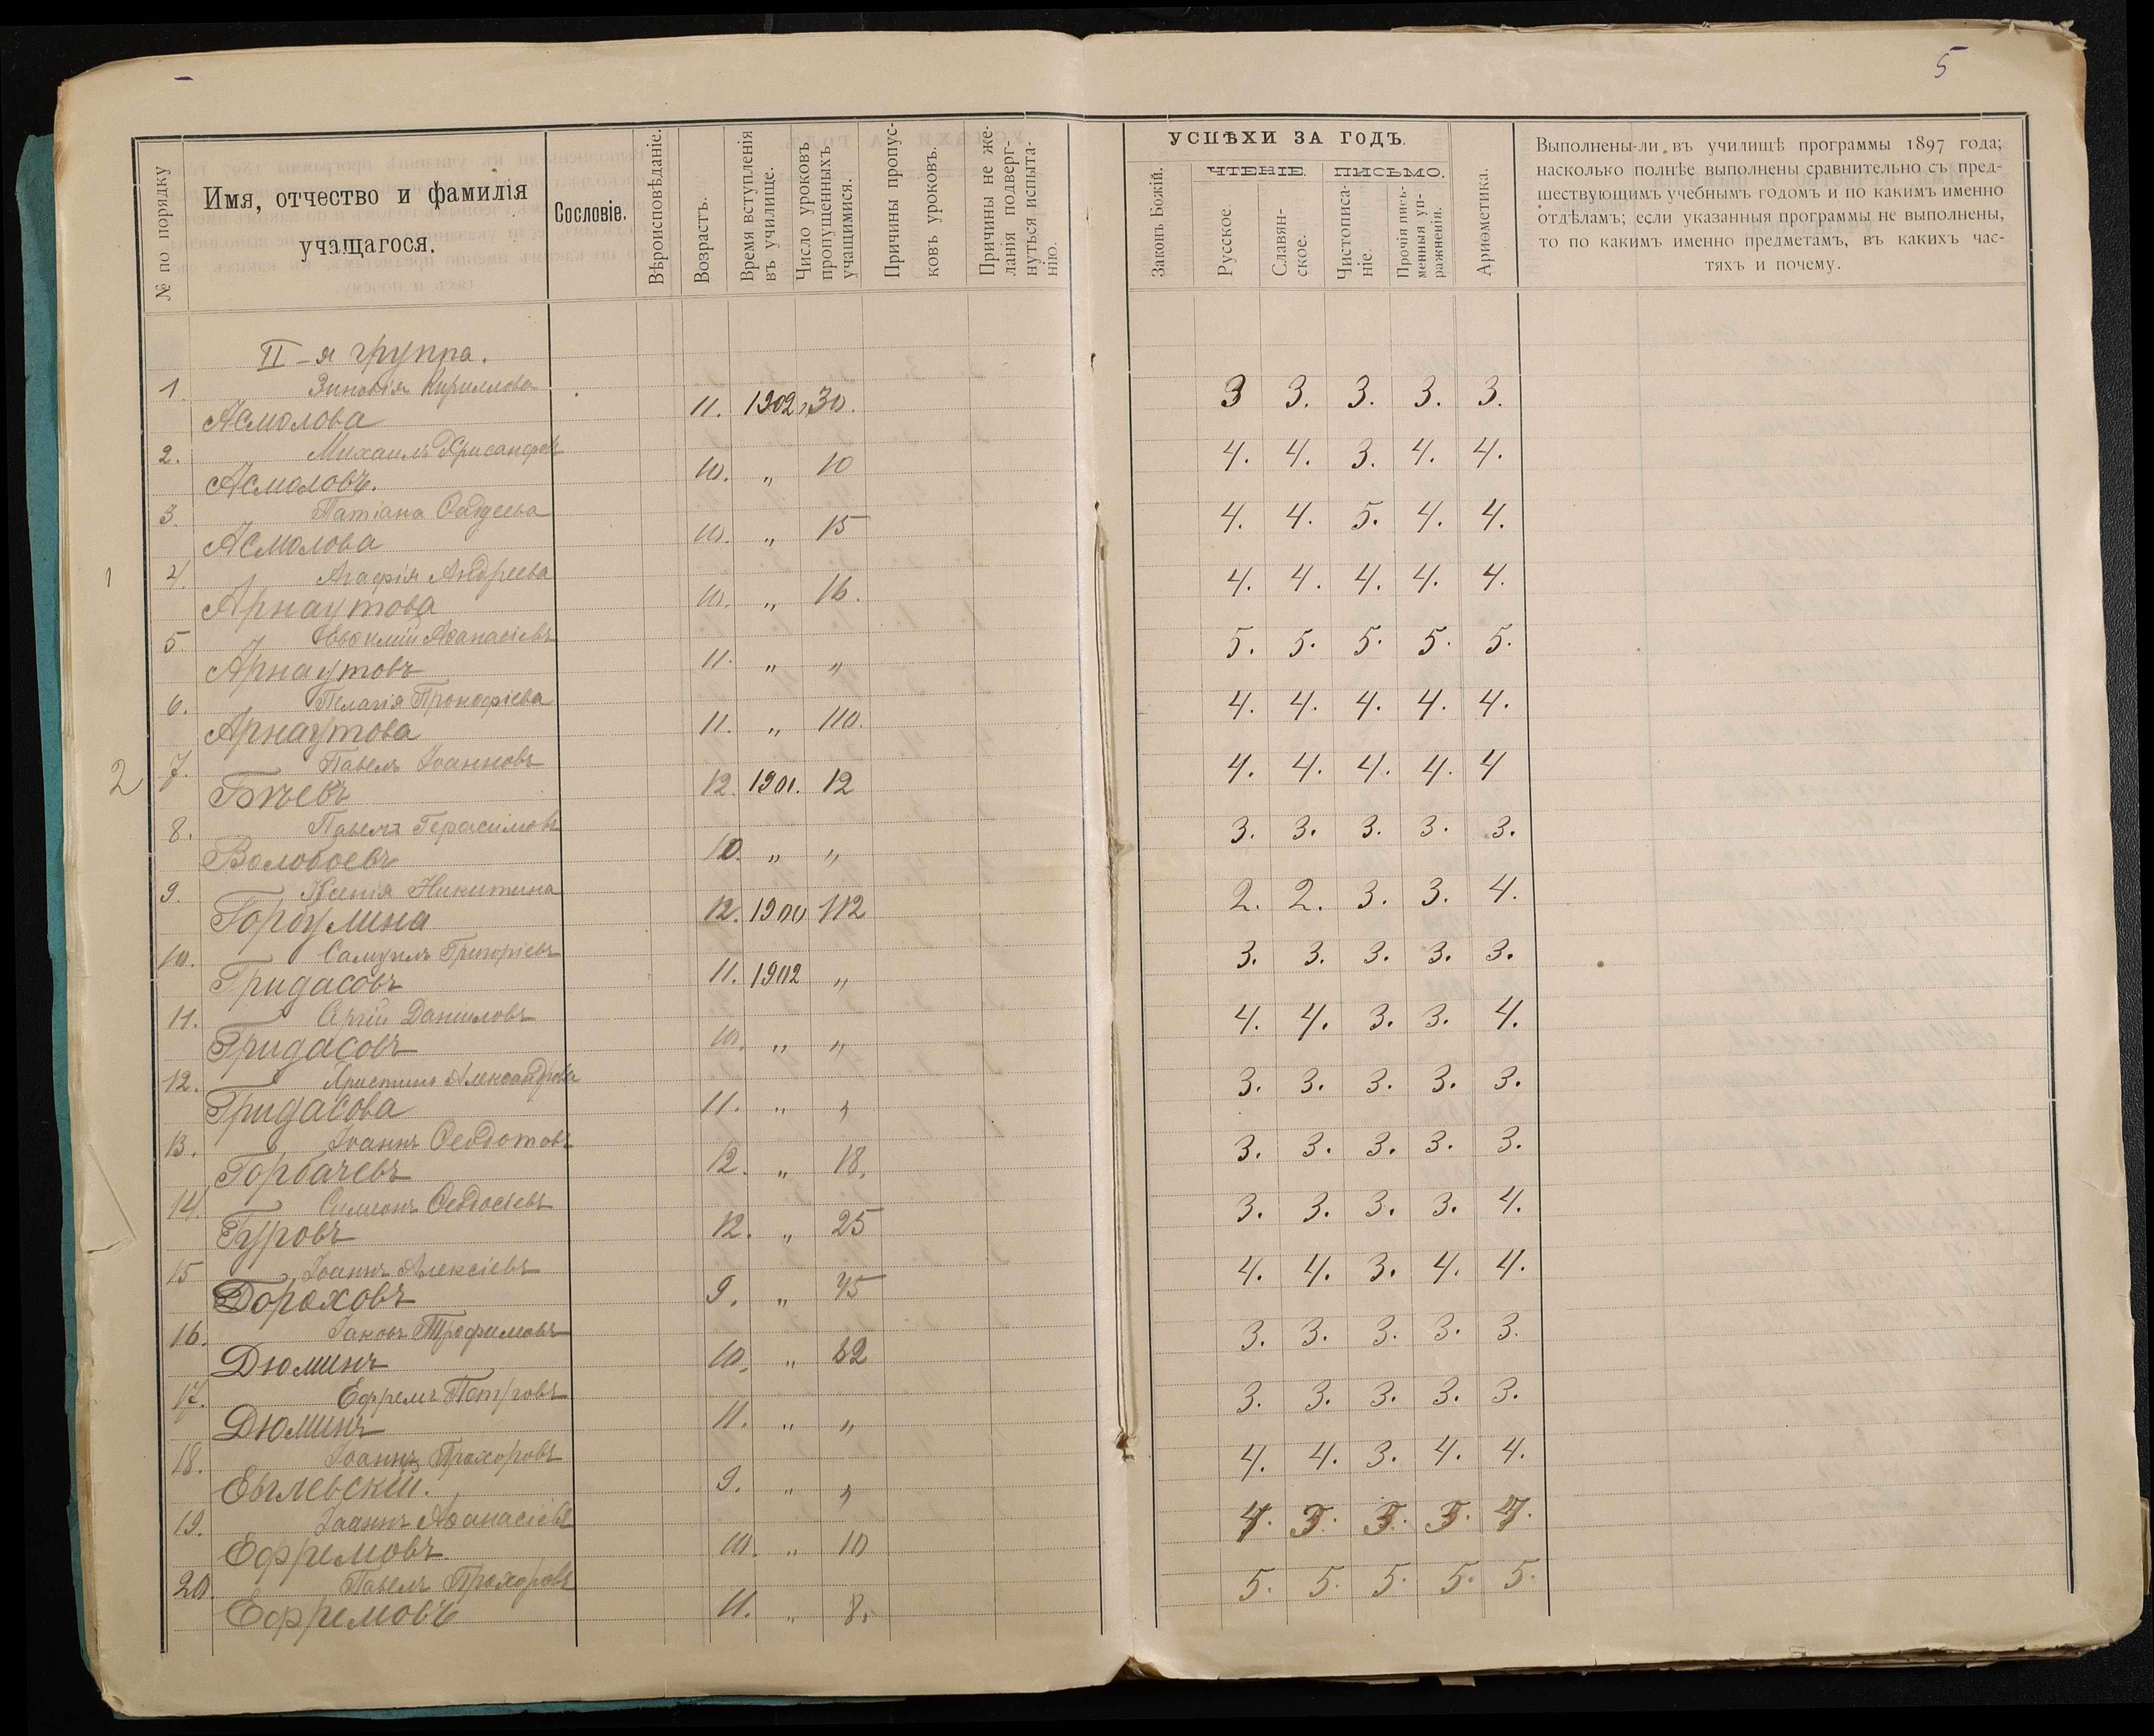 5
№ по порядку
Имя, отчество и фамилія
учащагося.
Сословіе.
Вѣроисповѣданіе.
Возрастъ.
Время вступленія
въ училище.
Число уроковъ
пропущенныхъ
учащимися.
Причины пропус-
ковъ уроковъ.
Причины не же-
ланія подверг-
нуться испыта-
нію.
УСПѢХИ ЗА ГОДЪ.
Законъ Божій.
ЧТЕНІЕ.
Русское.
Славян-
ское.
ПИСЬМО.
Чистописа-
ніе.
Прочія пись-
менныя уп-
ражненія.
Ариѳметика.
Выполнены-ли въ училищѣ программы 1897 года;
насколько полнѣе выполнены сравнительно съ пред-
шествующимъ учебнымъ годомъ и по какимъ именно
отдѣламъ; если указанныя программы не выполнены,
то по какимъ именно предметамъ, въ какихъ час-
тяхъ и почему.
II-я группа.
1. Зиновія Кириллова
Асмолова 11. 1902, 30. 3 3. 3. 3. 3.
2. Михаилъ Хрисанфовъ
Асмоловъ. 10. „ 10 4. 4. 3. 4. 4.
3. Татіана Фаддеева
Асмолова 10. „ 15 4. 4. 5. 4. 4.
1
4. Агафія Андреева
Арнаутова 10. „ 16. 4. 4. 4. 4. 4.
5. Евѳимій Аѳанасіевъ
Арнаутовъ 11. „ „ 5. 5. 5. 5. 5.
6. Пелагія Прокофіева
Арнаутова 11. „ 110. 4. 4. 4. 4. 4.
2
7. Павелъ Іоанновъ
Бѣевъ 12. 1901. 12 4. 4. 4. 4. 4
8. Павелъ Герасимовъ
Волобоевъ 10. „ „ 3. 3. 3. 3. 3.
9. Ксенія Никитина
Горбулина 12. 1900 112 2. 2. 3. 3. 4.
10. Самуилъ Григоріевъ
Гридасовъ 11. 1902 „ 3. 3. 3. 3. 3.
11. Сергій Даниловъ
Гридасовъ 10. „ „ 4. 4. 3. 3. 4.
12. Христина Александрова
Гридасова 11. „ „ 3. 3. 3. 3. 3.
13. Іоаннъ Ѳедотовъ
Горбачевъ 12. „ 18. 3. 3. 3. 3. 3.
14. Симеонъ Ѳеодосіевъ
Гуровъ 12. „ 25 3. 3. 3. 3. 4.
15 Іоаннъ Алексіевъ
Дороховъ 9. „ 45 4. 4. 3. 4. 4.
16. Іаковъ Трофимовъ
Дюминъ 10. „ 3. 3. 3. 3. 3.
17. Ефремъ Петровъ
Дюминъ 11. „ „ 3. 3. 3. 3. 3.
18. Іоаннъ Прохоровъ
Евылевскій. 9. „ „ 4. 4. 3. 4. 4.
19. Іоаннъ Аѳанасіевъ
Ефремовъ 10. „ 10
20. Павелъ Прохоровъ
Ефремовъ 11. „ 8. 5. 5. 5. 5. 5.